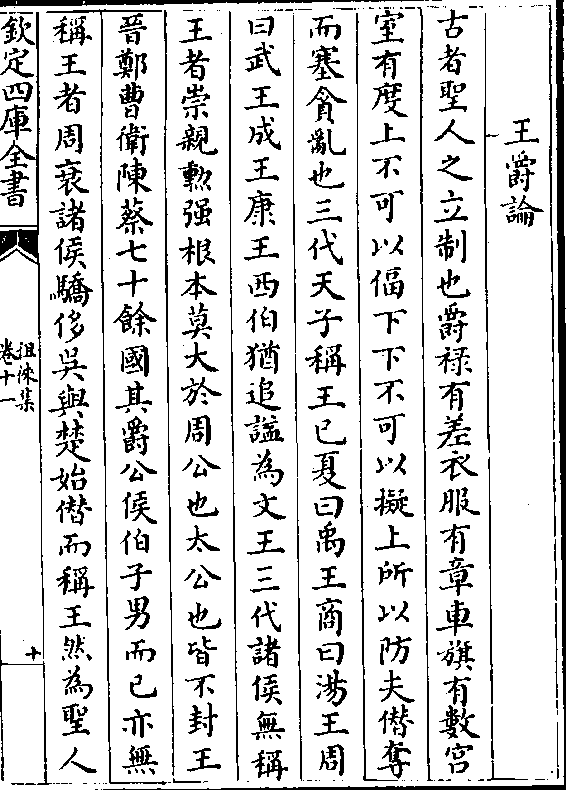 王爵論
古者聖人之立制也爵祿有差衣服有章車旗有數宫
室有度上不可以偪下下不可以擬上所以防夫僣奪
而塞貪亂也三代天子稱王已夏曰禹王商曰湯王周
曰武王成王康王西伯猶追諡為文王三代諸侯無稱
王者崇親勲强根本莫大於周公也太公也皆不封王
晉鄭曹衛陳蔡七十餘國其爵公侯伯子男而已亦無
稱王者周衰諸侯驕侈吳與楚始僣而稱王然為聖人
欽定四庫全書
徂徠集
卷十一
十